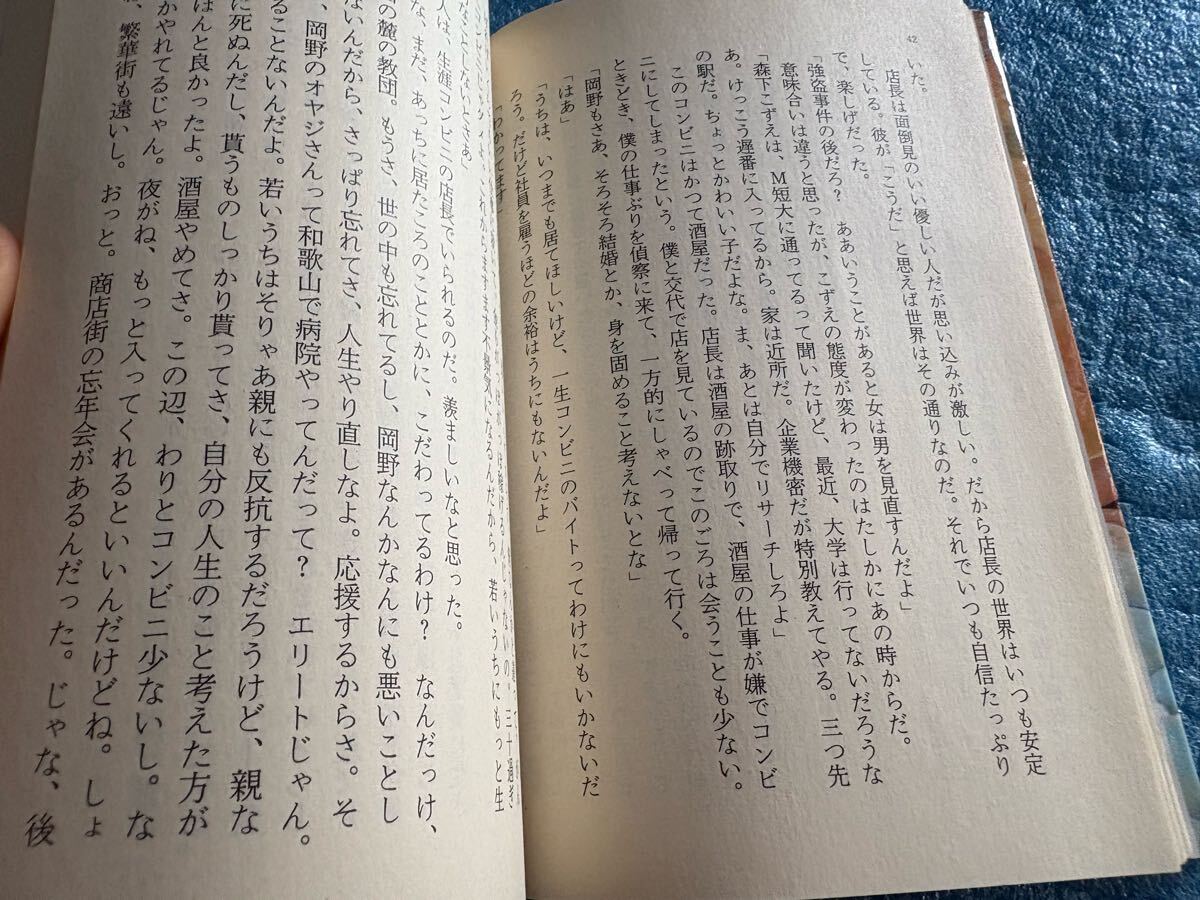 42
いた。
店長は面倒見のいい優しい人だが思い込みが激しい。だから店長の世界はいつも安定
している。彼が「こうだ」と思えば世界はその通りなのだ。それでいつも自信たっぷり
で、楽しげだった。
「強盗事件の後だろ？　ああいうことがあると女は男を見直すんだよ」
意味合いは違うと思ったが、こずえの態度が変わったのはたしかにあの時からだ。
「森下こずえは、M短大に通ってるって聞いたけど、最近、大学は行ってないだろうな
あ。けっこう遅番に入ってるから。家は近所だ。企業機密だが特別教えてやる。三つ先
の駅だ。ちょっとかわいい子だよな。ま、あとは自分でリサーチしろよ」
このコンビニはかつて酒屋だった。店長は酒屋の跡取りで、酒屋の仕事が嫌でコンビ
ニにしてしまったという。僕と交代で店を見ているのでこのごろは会うことも少ない。
ときどき、僕の仕事ぶりを偵察に来て、一方的にしゃべって帰って行く。
「岡野もさあ、そろそろ結婚とか、身を固めること考えないとな」
「はあ」
「うちは、いつまでも居てほしいけど、一生コンビニのバイトってわけにもいかないだ
ろう。だけど社員を雇うほどの余裕はうちにもないんだよ」
「わかってます」
三十過ぎ
これからますます不景気になるんだから、若いうちにもっと生
しないとさあ
人は、生涯コンビニの店長でいられるのだ。羨ましいなと思った。
な、まだ、あっちに居たころのこととかに、こだわってるわけ？　なんだっけ、
の麓の教団。もうさ、世の中も忘れてるし、岡野なんかなんにも悪いことし
ないんだから、さっぱり忘れてさ、人生やり直しなよ。応援するからさ。そ
、岡野のオヤジさんって和歌山で病院やってんだって？　エリートじゃん。
ることないんだよ。若いうちはそりゃあ親にも反抗するだろうけど、親な
に死ぬんだし、貰うものしっかり貰ってさ、自分の人生のこと考えた方が
ほんと良かったよ。酒屋やめてさ。この辺、わりとコンビニ少ないし。な
かやれてるじゃん。夜がね、もっと入ってくれるといいんだけどね。しょ
、繁華街も遠いし。おっと。商店街の忘年会があるんだった。じゃな、後